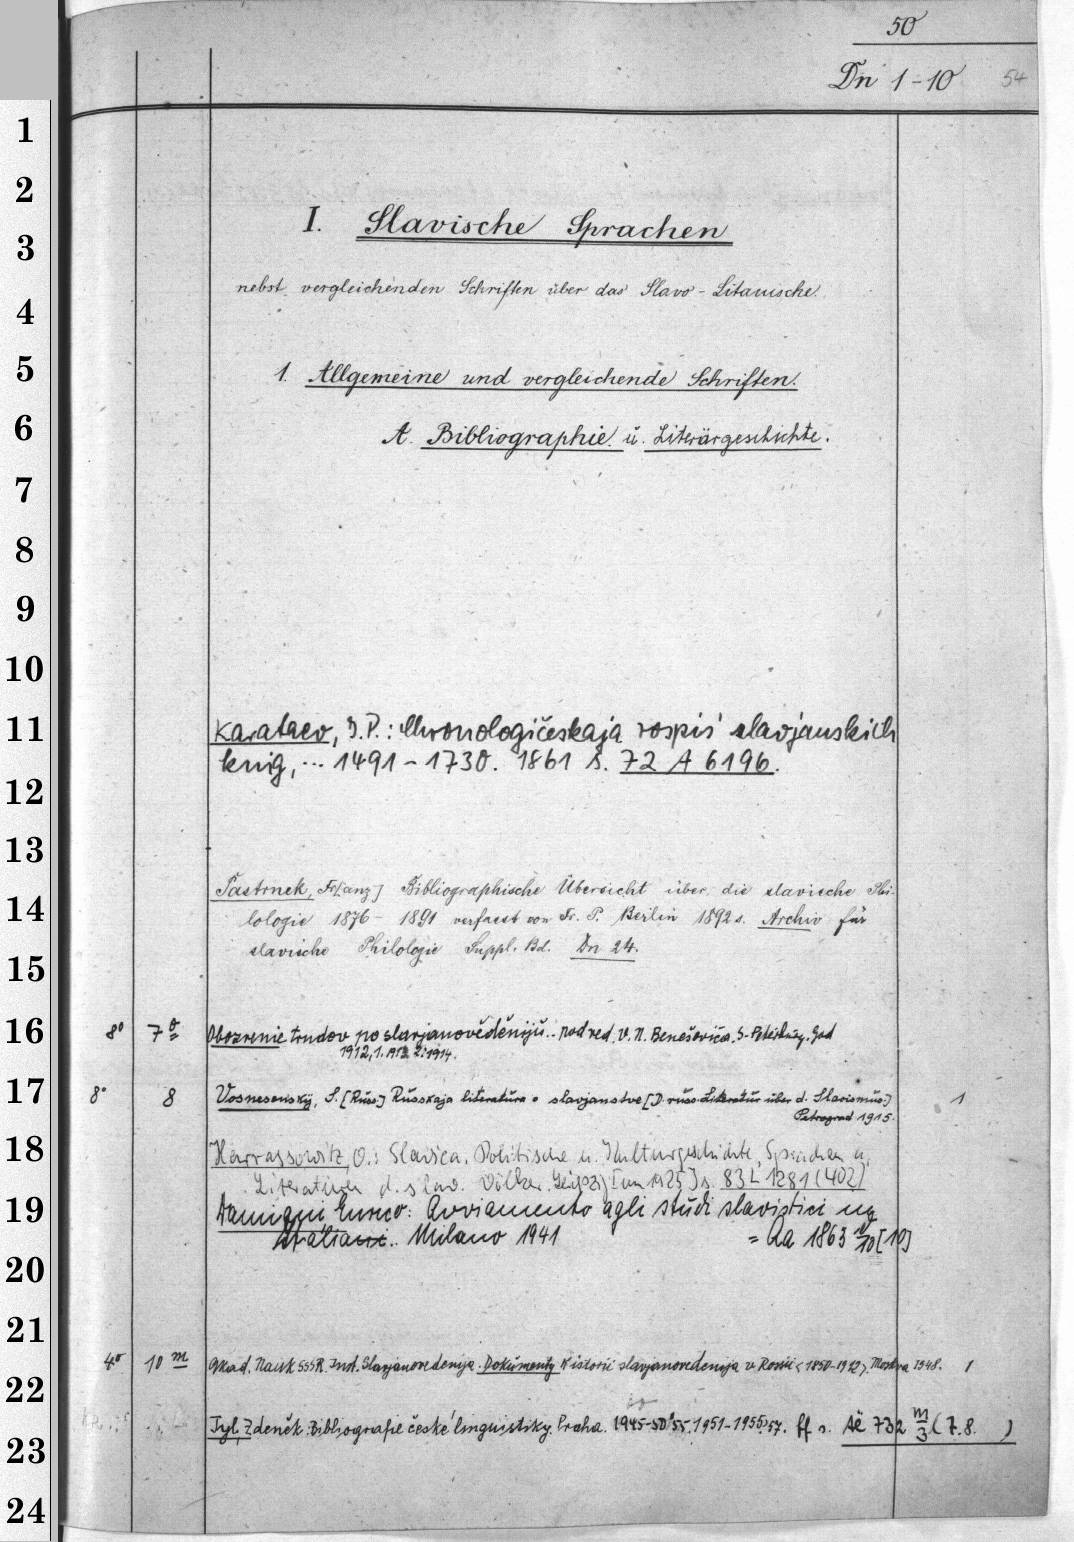 50
Dn 1-10 54
1
2
I. Slavische Sprachen
3
nebst vergleichenden Schriften über das Slavo-Litauische.
4
5
1. Allgemeine und vergleichende Schriften.
6
A. Bibliographie u. Literärgeschichte.
7
8
9
10
11
Karataev, I.P.: Chronologičeskaja rospiś slavjanskich
knig, ... 1491-1730. 1861 s. 72 A 6196.
12
13
Pastrnek, Fr[anz] Bibliographische Übersicht über die slavische Phi-
14
lologie 1876-1891 verfasst von Fr. P. Berlin 1892 s. Archiv für
slavische Philologie Suppl. Bd. Dn 24.
15
16 8° 7 Obozrenie trudov po slavjanověděniju. Pod red. V. N. Beneševiča. S-Peterburg. God
1912, 1. 1913 2. 1914.
17 8° 8 Vosnesenskij, S. [Russ.] Russkaja literatura o slavjanstve [D. russ. Literatur über d. Slavismus.] 1
Petrograd 1915.
18
Harrassowitz, O.: Slavica. Politische u. Kulturgeschichte, Sprachen u.
Literaturen d. slav. Völker. Leipzig [um 1925] s. 83 L 1281 (402)
19
Damiani Enrico: Avviamento agli studi slavistici
Italiani. Milano 1941 = Aa 1863 10 [10]
20
21
4° 10 m Akad. Nauk SSSR. Inst. Slavjanovedenija. Dokumenty k istorii slavjanovedenija v Rossii (1850-1912). Moskva 1948. 1
22
Tyl, Zdeněk: Bibliografie české linguistiky. Praha. 1945-50 1951-1955 57. ff s. Aë 732 m/3 (7.8. )
23
24